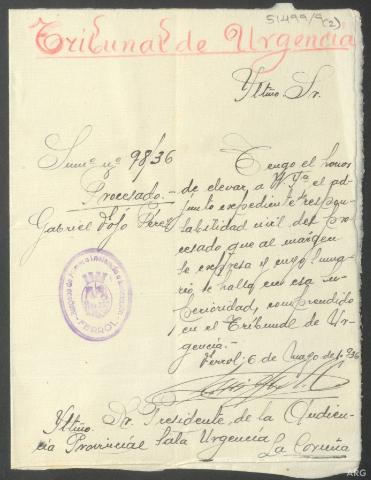 51499/9(2)
Tribunal de Urgencia
Yltmo. Sr.
Sumº nº 98/36
Procesado.-
Gabriel Pérez
Tengo el honor
de elevar a V.Yª el ad-
junto expediente de responsa-
bilidad civil del pro-
cesado que al margen
se expresa y cuyo suma-
rio se halla en esa su-
perioridad, comprendido
en el Tribunal de Ur-
gencia.-
Ferrol, 6 de Mayo de 1.936
FERROL
Yltmo. Sr. Presidente de la Audien-
cia Provincial Sala Urgencia
La Coruña
ARG